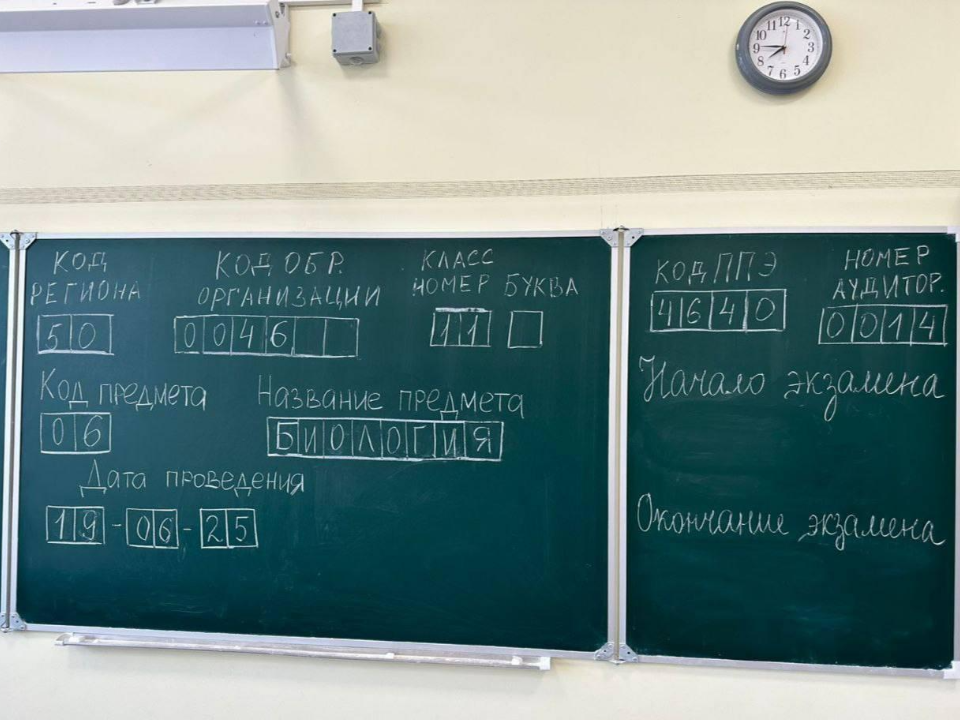 КОД РЕГИОНА
50
КОД ОБР. ОРГАНИЗАЦИИ
0046
КЛАСС
НОМЕР БУКВА
11
Код предмета
06
Название предмета
БИОЛОГИЯ
Дата проведения
19-06-25
КОД ППЭ
4640
НОМЕР АУДИТОР.
0014
Начало экзамена
Окончание экзамена
12
1
2
3
4
5
6
7
8
9
10
11